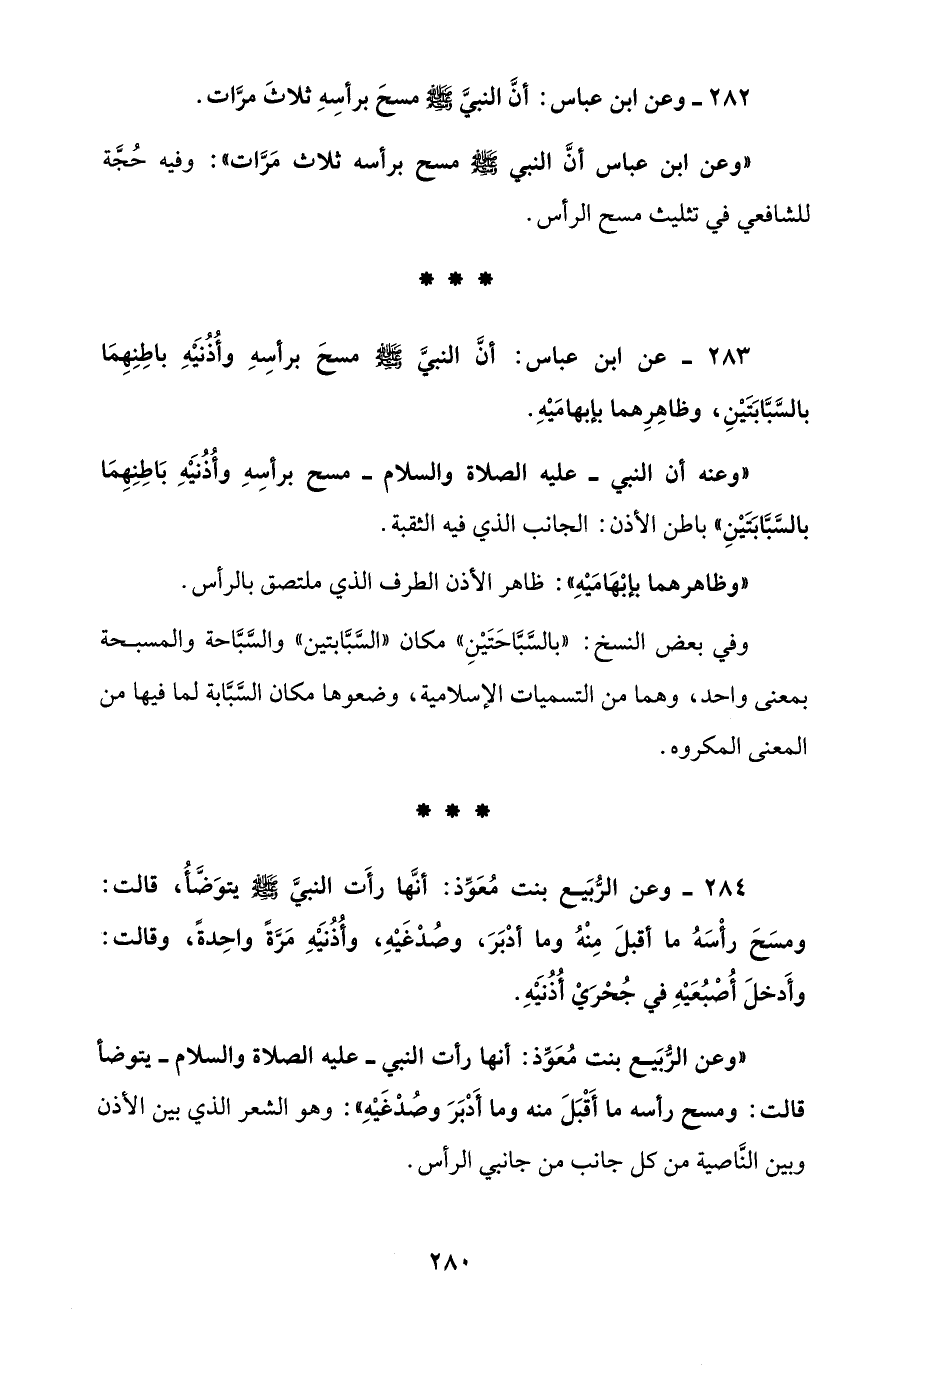 ٢٨٢ ـ وعن ابن عباس: أنَّ النبيَّ ﷺ مسحَ برأسِهِ ثلاثَ مرَّات.
«وعن ابن عباس أنَّ النبي ﷺ مسح برأسه ثلاث مَرَّات»: وفيه حُجَّة
للشافعي في تثليث مسح الرأس.
* * *
٢٨٣ ـ عن ابن عباس: أنَّ النبيَّ ﷺ مسحَ برأسِهِ وأُذُنَيْهِ باطِنِهِمَا
بالسَّبَّابَتَيْنِ، وظاهِرِهما بإبهامَيْهِ.
«وعنه أن النبي ـ عليه الصلاة والسلام ـ مسح برأسِهِ وأُذُنَيْهِ بَاطِنِهِمَا
بالسَّبَّابَتَيْنِ» باطن الأذن: الجانب الذي فيه الثقبة.
«وظاهرهما بإبْهَامَيْهِ»: ظاهر الأذن الطرف الذي ملتصق بالرأس.
وفي بعض النسخ: «بالسَّبَّاحَتَيْنِ» مكان «السَّبَّابتين» والسَّبَّاحة والمسبحة
بمعنى واحد، وهما من التسميات الإسلامية، وضعوها مكان السَّبَّابة لما فيها من
المعنى المكروه.
* * *
٢٨٤ ـ وعن الرُّبَيـع بنت مُعَوِّذ: أنَّها رأَت النبيَّ ﷺ يتوَضَّأُ، قالت:
ومسَحَ رأْسَهُ ما أقبلَ مِنْهُ وما أدْبَرَ، وصُدْغَيْهِ، وأُذُنَيْهِ مَرَّةً واحِدةً، وقالت:
وأَدخلَ أُصْبُعَيْهِ في جُحْرَيْ أُذُنَيْهِ.
«وعن الرُّبَيـع بنت مُعَوِّذ: أنها رأت النبي ـ عليه الصلاة والسلام ـ يتوضأ
قالت: ومسح رأسه ما أَقْبَلَ منه وما أَدْبَرَ وصُدْغَيْهِ»: وهو الشعر الذي بين الأذن
وبين النَّاصية من كل جانب من جانبي الرأس.
٢٨٠